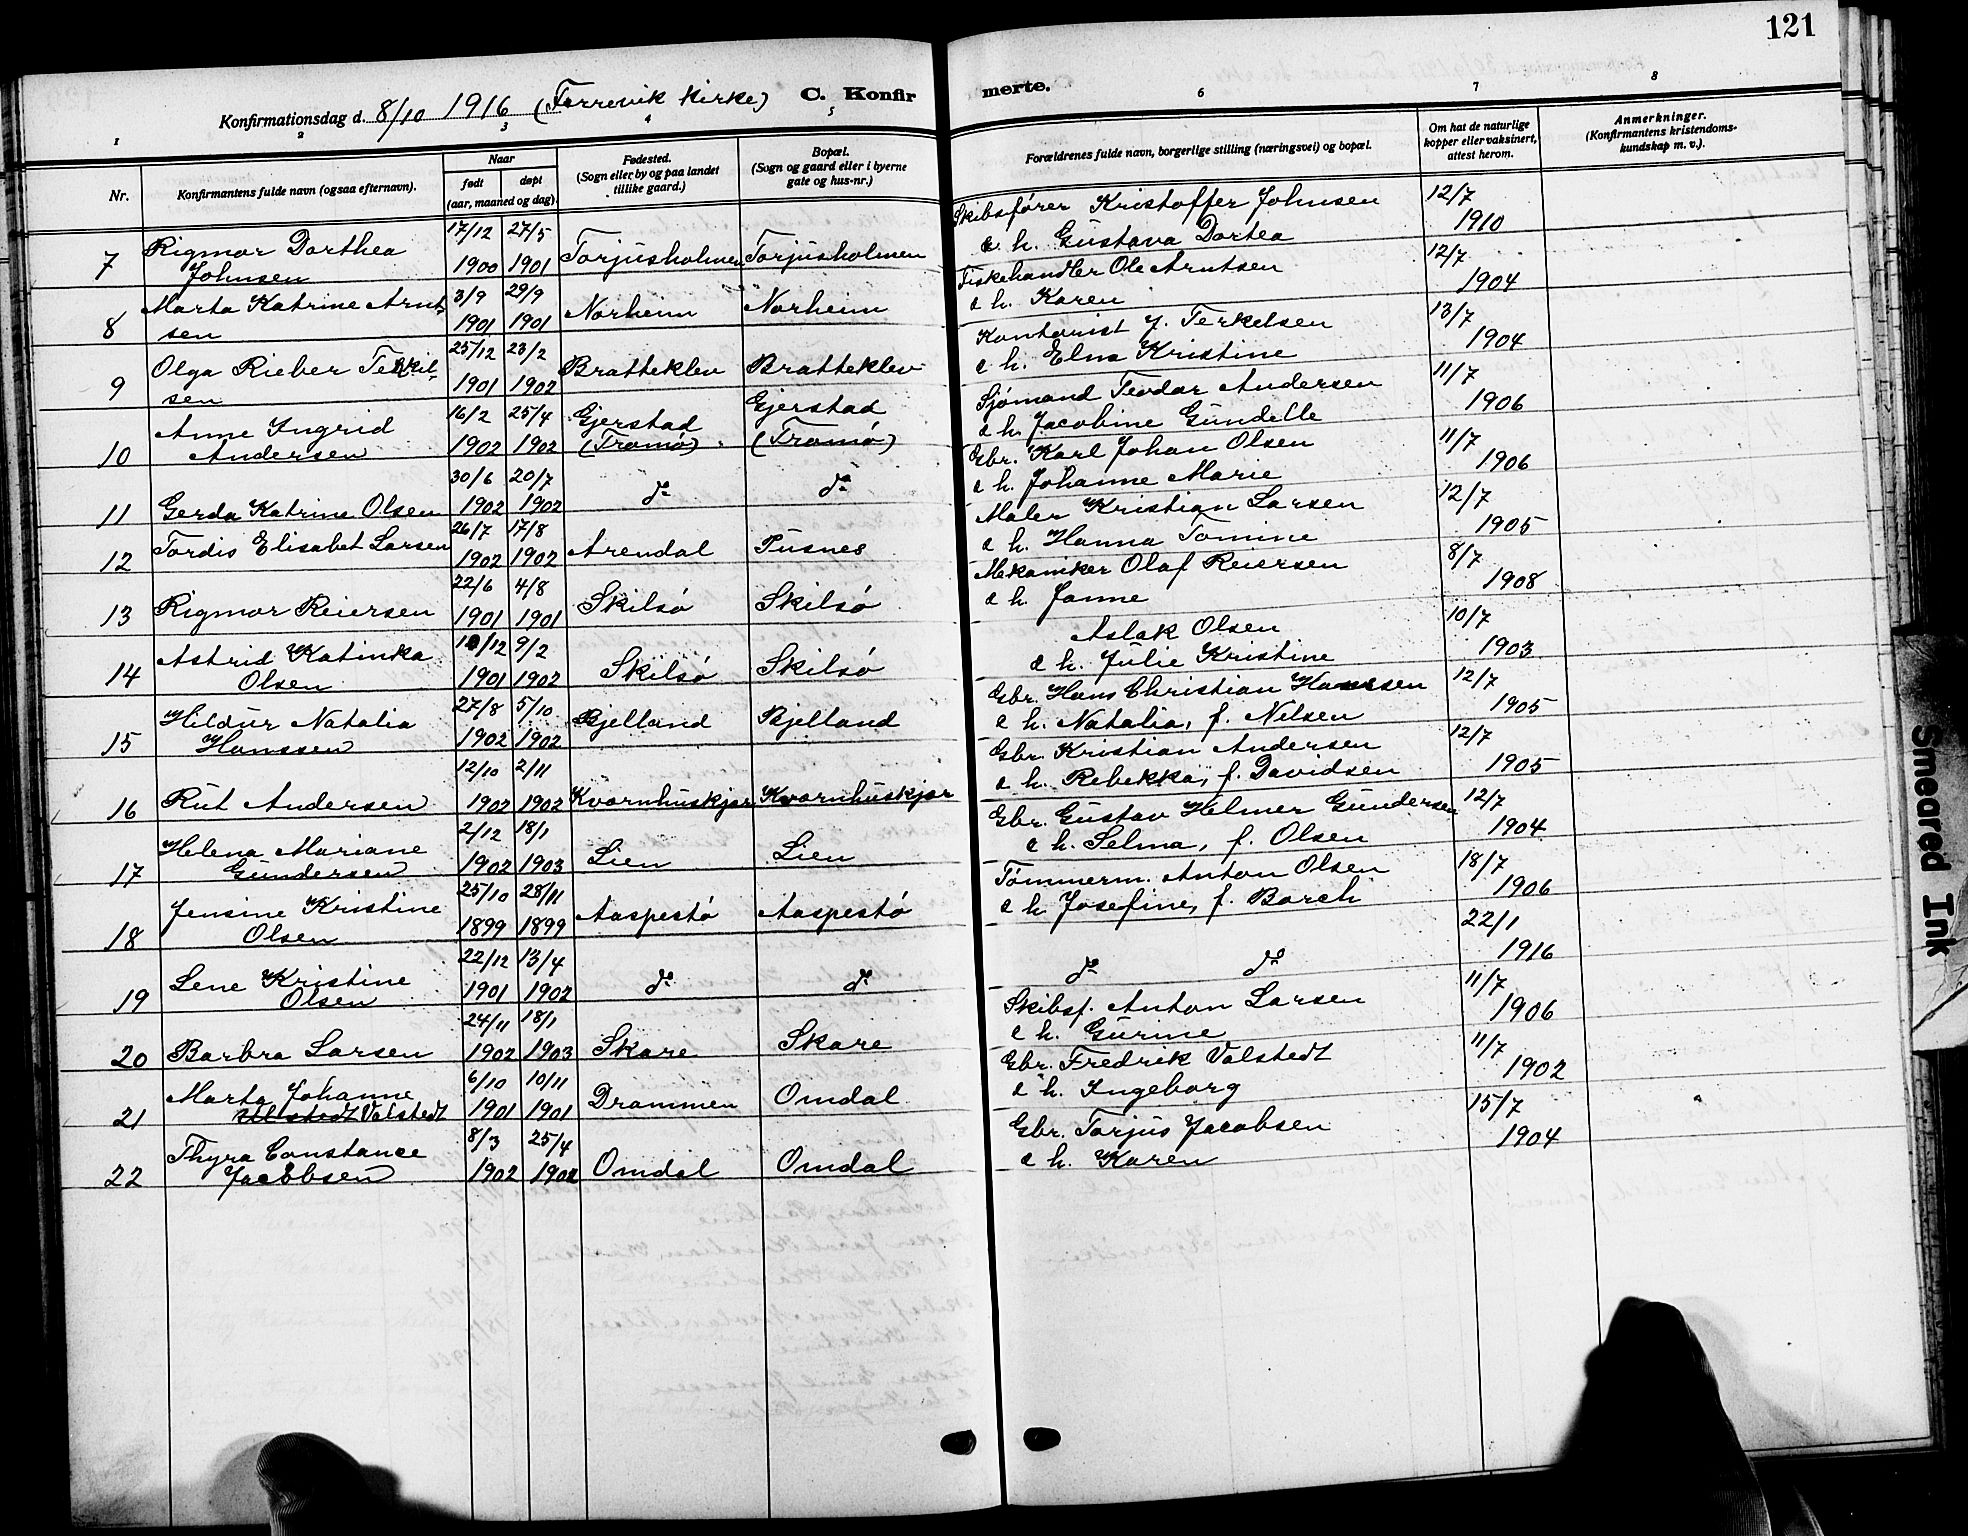 121
Konfirmationsdag d. 8/10 1916 (Færrevik kirke) C. Konfirmerte.
1 2 3 4 5 6 7 8
Nr.
Konfirmantens fulde navn (ogsaa efternavn).
Naar
født døpt
(aar, maaned og dag).
Fødested.
(Sogn eller by og paa landet
tillike gaard.)
Bopæl.
(Sogn og gaard eller i byerne
gate og hus-nr.)
Forældrenes fulde navn, borgerlige stilling (næringsvei) og bopæl.
Om hat de naturlige
kopper eller vaksinert,
attest herom.
Anmerkninger.
(Konfirmantens kristendoms-
kundskap m. v.).
Rigmor Dorthea 17/12 27/5 Skibsfører Kristoffer Johnsen 12/7
7 Johnsen 1900 1901 Torjusholmen Torjusholmen & h. Gustava Dortea 1910
Marta Katrine Arnt- 3/9 29/9 Fiskehandler Ole Arntsen 12/7
8 sen 1901 1901 Norheim Norheim & h. Karen 1904
Olga Rieber Terkil- 25/12 23/2 Kontorist J. Terkelsen 13/7
9 sen 1901 1902 Bratteklev Bratteklev & h. Elna Kristine 1904
Anne Ingrid 16/2 25/4 Gjerstad Gjerstad Sjømand Teodor Andersen 11/7
10 Andersen 1902 1902 (Tromø) (Tromø) & h. Jacobine Gundelle 1906
30/6 20/7 Gbr. Karl Johan Olsen 11/7
11 Gerda Katrine Olsen 1902 1902 do do & h. Johanne Marie 1906
Tordis Elisabet Larsen 26/7 17/8 Maler Kristian Larsen 12/7
12 1902 1902 Arendal Pusnes & h. Hanna Tomine 1905
22/6 4/8 Mekaniker Olaf Reiersen 8/7
13 Rigmor Reiersen 1901 1901 Skilsø Skilsø & h. Janne 1908
Astrid Katinka 10/12 9/2 Aslak Olsen 10/7
14 Olsen 1901 1902 Skilsø Skilsø & h. Julie Kristine 1903
Hildur Natalia 27/8 5/10 Gbr. Hans Christian Hanssen 12/7
15 Hanssen 1902 1902 Bjelland Bjelland & h. Natalia, f. Nilsen 1905
12/10 2/11 Gbr. Kristian Andersen 12/7
16 Rut Andersen 1902 1902 Kvarnhuskjær Kvarnhuskjær & h. Rebekka, f. Davidsen 1905
Helena Mariane 2/12 18/1 Gbr. Gustav Helmer Gundersen 12/7
17 Gundersen 1902 1903 Lien Lien & h. Selma, f. Olsen 1904
Jensine Kristine 25/10 28/11 Tømmerm. Anton Olsen 18/7
18 Olsen 1899 1899 Aaspestø Aaspestø & h. Josefine, f. Borch 1906
Lene Kristine 22/12 13/4 22/1
19 Olsen 1901 1902 do do do do 1916
24/11 18/1 Skibsf. Anton Larsen 11/7
20 Barbra Larsen 1902 1903 Skare Skare & h. Gurine 1906
Marta Johanne 6/10 10/11 Gbr. Fredrik Valstedt 11/7
21 Valstedt 1901 1901 Drammen Omdal & h. Ingeborg 1902
Thyra Constance 8/3 25/4 Gbr. Torjus Jacobsen 15/7
22 Jacobsen 1902 1902 Omdal Omdal & h. Karen 1904
Smeared Ink